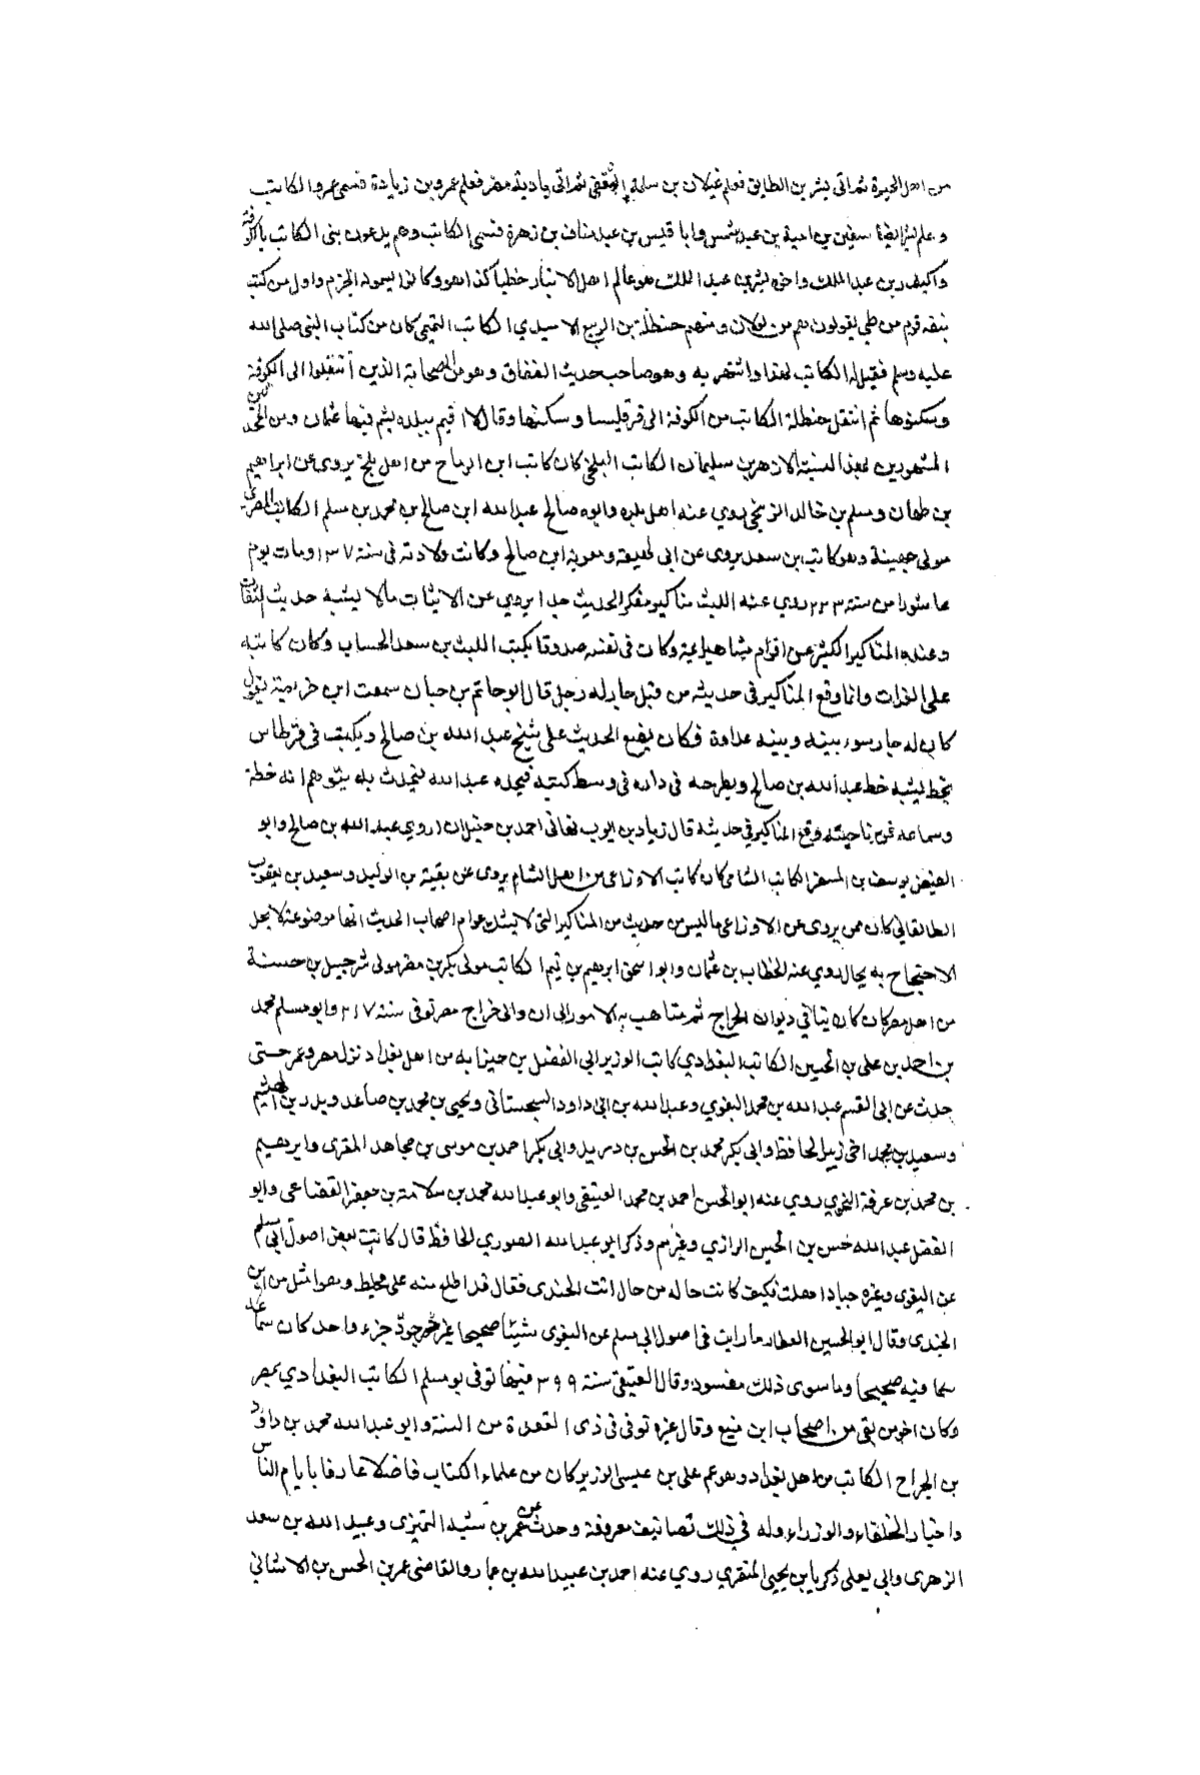 من اهل الحيرة ثم اتى بشر بن الطايف فعلم غيلان بن سلمة الثقفي ثم اتى بادية مضر فعلم عمرو بن زيادة فسمى عمرو الكاتب
وعلم بشر ايضا سفين بن امية بن عبد شمس وابا قيس بن عبد مناف بن زهرة فسمى الكاتب وهم يدعون بنى الكاتب بالكوفة
واكيدر بن عبد الملك واخوه بشر بن عبد الملك هو عالم اهل الانبار خطنا كذا هو وكانوا يسمونه الجزم واول من كتب
بنفه قوم من طي يقولون هم من بولان ومنهم حنظلة بن الربيع الاسيدي الكاتب التميمى كان من كتاب النبى صلى الله
عليه وسلم فقيل له الكاتب لهذا واشتهر به وهو صاحب حديث النفاق وهو من الصحابة الذين انتقلوا الى الكوفة
وسكنوها ثم انتقل حنظلة الكاتب من الكوفة الى قرقيسا وسكنها وقال لا اقيم ببلده يشتم فيها عثمان ومن المحدثين
المشهورين بهذا النسبة الازهر بن سليمان الكاتب البلخى كان كاتب ابن الرماح من اهل بلخ يروى عن ابراهيم
بن طهمان ومسلم بن خالد الزنجى روي عنه اهل بلده وابو صالح عبد الله ابن صالح بن محمد بن مسلم الكاتب المصرى
مولى جهينة وهو كاتب بن سعد يروى عن ابى لهيعة ومعوية ابن صالح وكانت ولادته فى سنة ١٣٧ ومات يوم
عاشورا من سنة ٢٢٣ روي عنه الليث مناكير منكر الحديث جدا يروي عن الاثبات مالا يشبه حديث الثقات
وعنده المناكير الكثيره عن اقوام مشاهير ايمة وكان فى نفسه صدوقا يكتب الليث بن سعد الحساب وكان كاتبه
على الغلات وانما وقع المناكير فى حديثه من قبل جار له رجل قال ابو حاتم بن حبان سمعت ابن خزيمة يقول
كان له جار سوء بينه وبينه عداوة فكان يضع الحديث على شيخ عبد الله بن صالح ويكتب فى قرطاس
بخط يشبه خط عبد الله بن صالح ويطرحه فى داره فى وسط كتبه فيجده عبد الله فيحدث به يتوهم انه خطه
وسماعه فمن ناحيته وقع المناكير في حديثه قال زياد بن ايوب نهانى احمد بن حنبل ان اروي عبد الله بن صالح وابو
الفيض يوسف بن السفر الكاتب الشامى كان كاتب الاوزاعى من اهل الشام يروى عن بقية بن الوليد وسعيد بن يعقوب
الطالقاني كان ممن يروى عن الاوزاعى ما ليس من حديث من المناكير التى لا يشك عوام اصحاب الحديث انها موضوعة لا يحل
الاحتجاج به بحال روي عنه الخطاب بن عثمان وابو اسحق ابرهيم بن تيم الكاتب مولى بكر بن مضر مولى شرحبيل بن حسنة
من اهل مصر كان كان في ديوان الخراج ثم به الامور الى ان والى خراج مصر توفى سنة ٢١٧ وابو مسلم محمد
بن احمد بن على بن الحسين الكاتب البغدادي كاتب الوزير ابى الفضل بن حنزابه من اهل بغداد نزل مصر وعمر حتى
حدث عن ابى القسم عبد الله بن محمد البغوي وعبد الله بن ابى داود السجستانى ويحيى بن محمد بن صاعد وبدر بن الهيثم
وسعيد بن محمد اخى زبير الحافظ وابى بكر محمد بن الحسن بن دريد وابى بكر احمد بن موسى بن مجاهد المقرى وابرهيم
بن محمد بن عرفة النحوي روي عنه ابو الحسن احمد بن محمد العتيقى وابو عبد الله محمد بن سلامة بن جعفر القضاعى وابو
الفضل عبد الله حسن بن الحسين الرازي وغيرهم وذكر ابو عبد الله الصوري الحافظ قال كانت بعض اصول ابى مسلم
عن البغوى وغيره جيادا فكيف كانت حاله من حال الجندى فقال قد اطلع منه على تخليط وهو امثل من ابن
الجندى وقال ابو الحسين العطار ما رايت فى اصول ابى مسلم عن البغوى شيئا صحيحا غير جزء واحد كان سماعه
سما فيه صحيحا وما سوى ذلك مفسود وقال العتيقى سنة ٣٩٩ فيها توفى ابو مسلم الكاتب البغدادي بمصر
وكان اخر من بقى من اصحاب ابن منيع وقال غيره توفى فى ذى القعدة من السنة وابو عبد الله محمد بن داود
بن الجراح الكاتب من اهل بغداد وهو عم على بن عيسى الوزير كان من علماء الكتاب فاضلا عارفا بايام الناس
واخبار الخلفاء والوزراء وله في ذلك تصانيف معروفة وحدث عن عمر بن شبه النميرى وعبيد الله بن سعد
الزهرى وابى يعلى زكريا بن يحيى المنقري روي عنه احمد بن عبيد الله بن عمار والقاضى عمر بن الحسن بن الاشناني